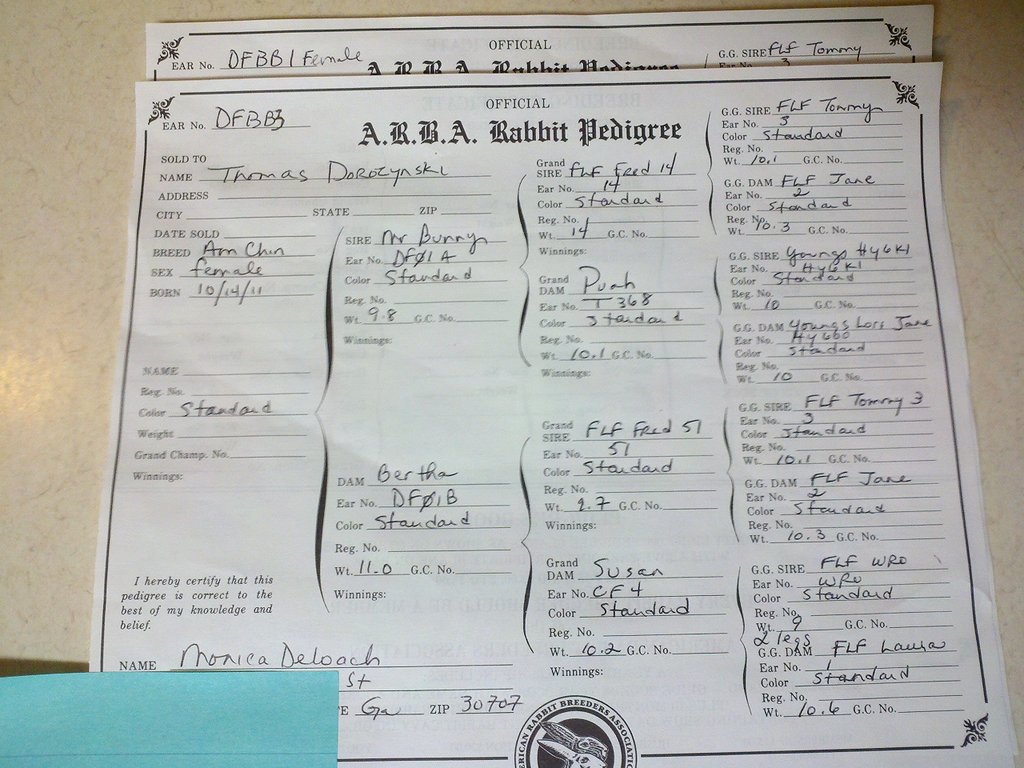 OFFICIAL
EAR No. DFBB1 Female
A.R.B.A. Rabbit Pedigree
G.G. SIRE FLF Tommy
Ear No. 3
OFFICIAL
A.R.B.A. Rabbit Pedigree
EAR No. DFBB3
SOLD TO
NAME Thomas Dorozynski
ADDRESS
CITY STATE ZIP
DATE SOLD
BREED Am Chin
SEX female
BORN 10/14/11
NAME
Reg. No.
Color Standard
Weight
Grand Champ. No.
Winnings:
I hereby certify that this
pedigree is correct to the
best of my knowledge and
belief.
NAME Monica Deloach
St
E Ga ZIP 30707
SIRE Mr Bunny
Ear No. DFØ1A
Color Standard
Reg. No.
Wt. 9.8 G.C. No.
Winnings:
DAM Bertha
Ear No. DFØ1B
Color Standard
Reg. No.
Wt. 11.0 G.C. No.
Winnings:
Grand
SIRE FLF Fred 14
Ear No. 14
Color Standard
Reg. No.
Wt. 14 G.C. No.
Winnings:
Grand
DAM Puah
Ear No. T368
Color Standard
Reg. No.
Wt. 10.1 G.C. No.
Winnings:
Grand
SIRE FLF Fred 51
Ear No. 51
Color Standard
Reg. No.
Wt. 9.7 G.C. No.
Winnings:
Grand
DAM Susan
Ear No. CF4
Color Standard
Reg. No.
Wt. 10.2 G.C. No.
Winnings:
G.G. SIRE FLF Tommy
Ear No. 3
Color Standard
Reg. No.
Wt. 10.1 G.C. No.
G.G. DAM FLF Jane
Ear No. 2
Color Standard
Reg. No.
Wt. 10.3 G.C. No.
G.G. SIRE Youngs Hy6K1
Ear No. Hy6K1
Color Standard
Reg. No.
Wt. 10 G.C. No.
G.G. DAM Youngs Lori Jane
Ear No. Hy660
Color Standard
Reg. No.
Wt. 10 G.C. No.
G.G. SIRE FLF Tommy 3
Ear No. 3
Color Standard
Reg. No.
Wt. 10.1 G.C. No.
G.G. DAM FLF Jane
Ear No. 2
Color Standard
Reg. No.
Wt. 10.3 G.C. No.
G.G. SIRE FLF WRO
Ear No. WRO
Color Standard
Reg. No.
Wt. 9 G.C. No.
2 legs
G.G. DAM FLF Laura
Ear No. 1
Color Standard
Reg. No.
Wt. 10.6 G.C. No.
AMERICAN RABBIT BREEDERS ASSOCIATION